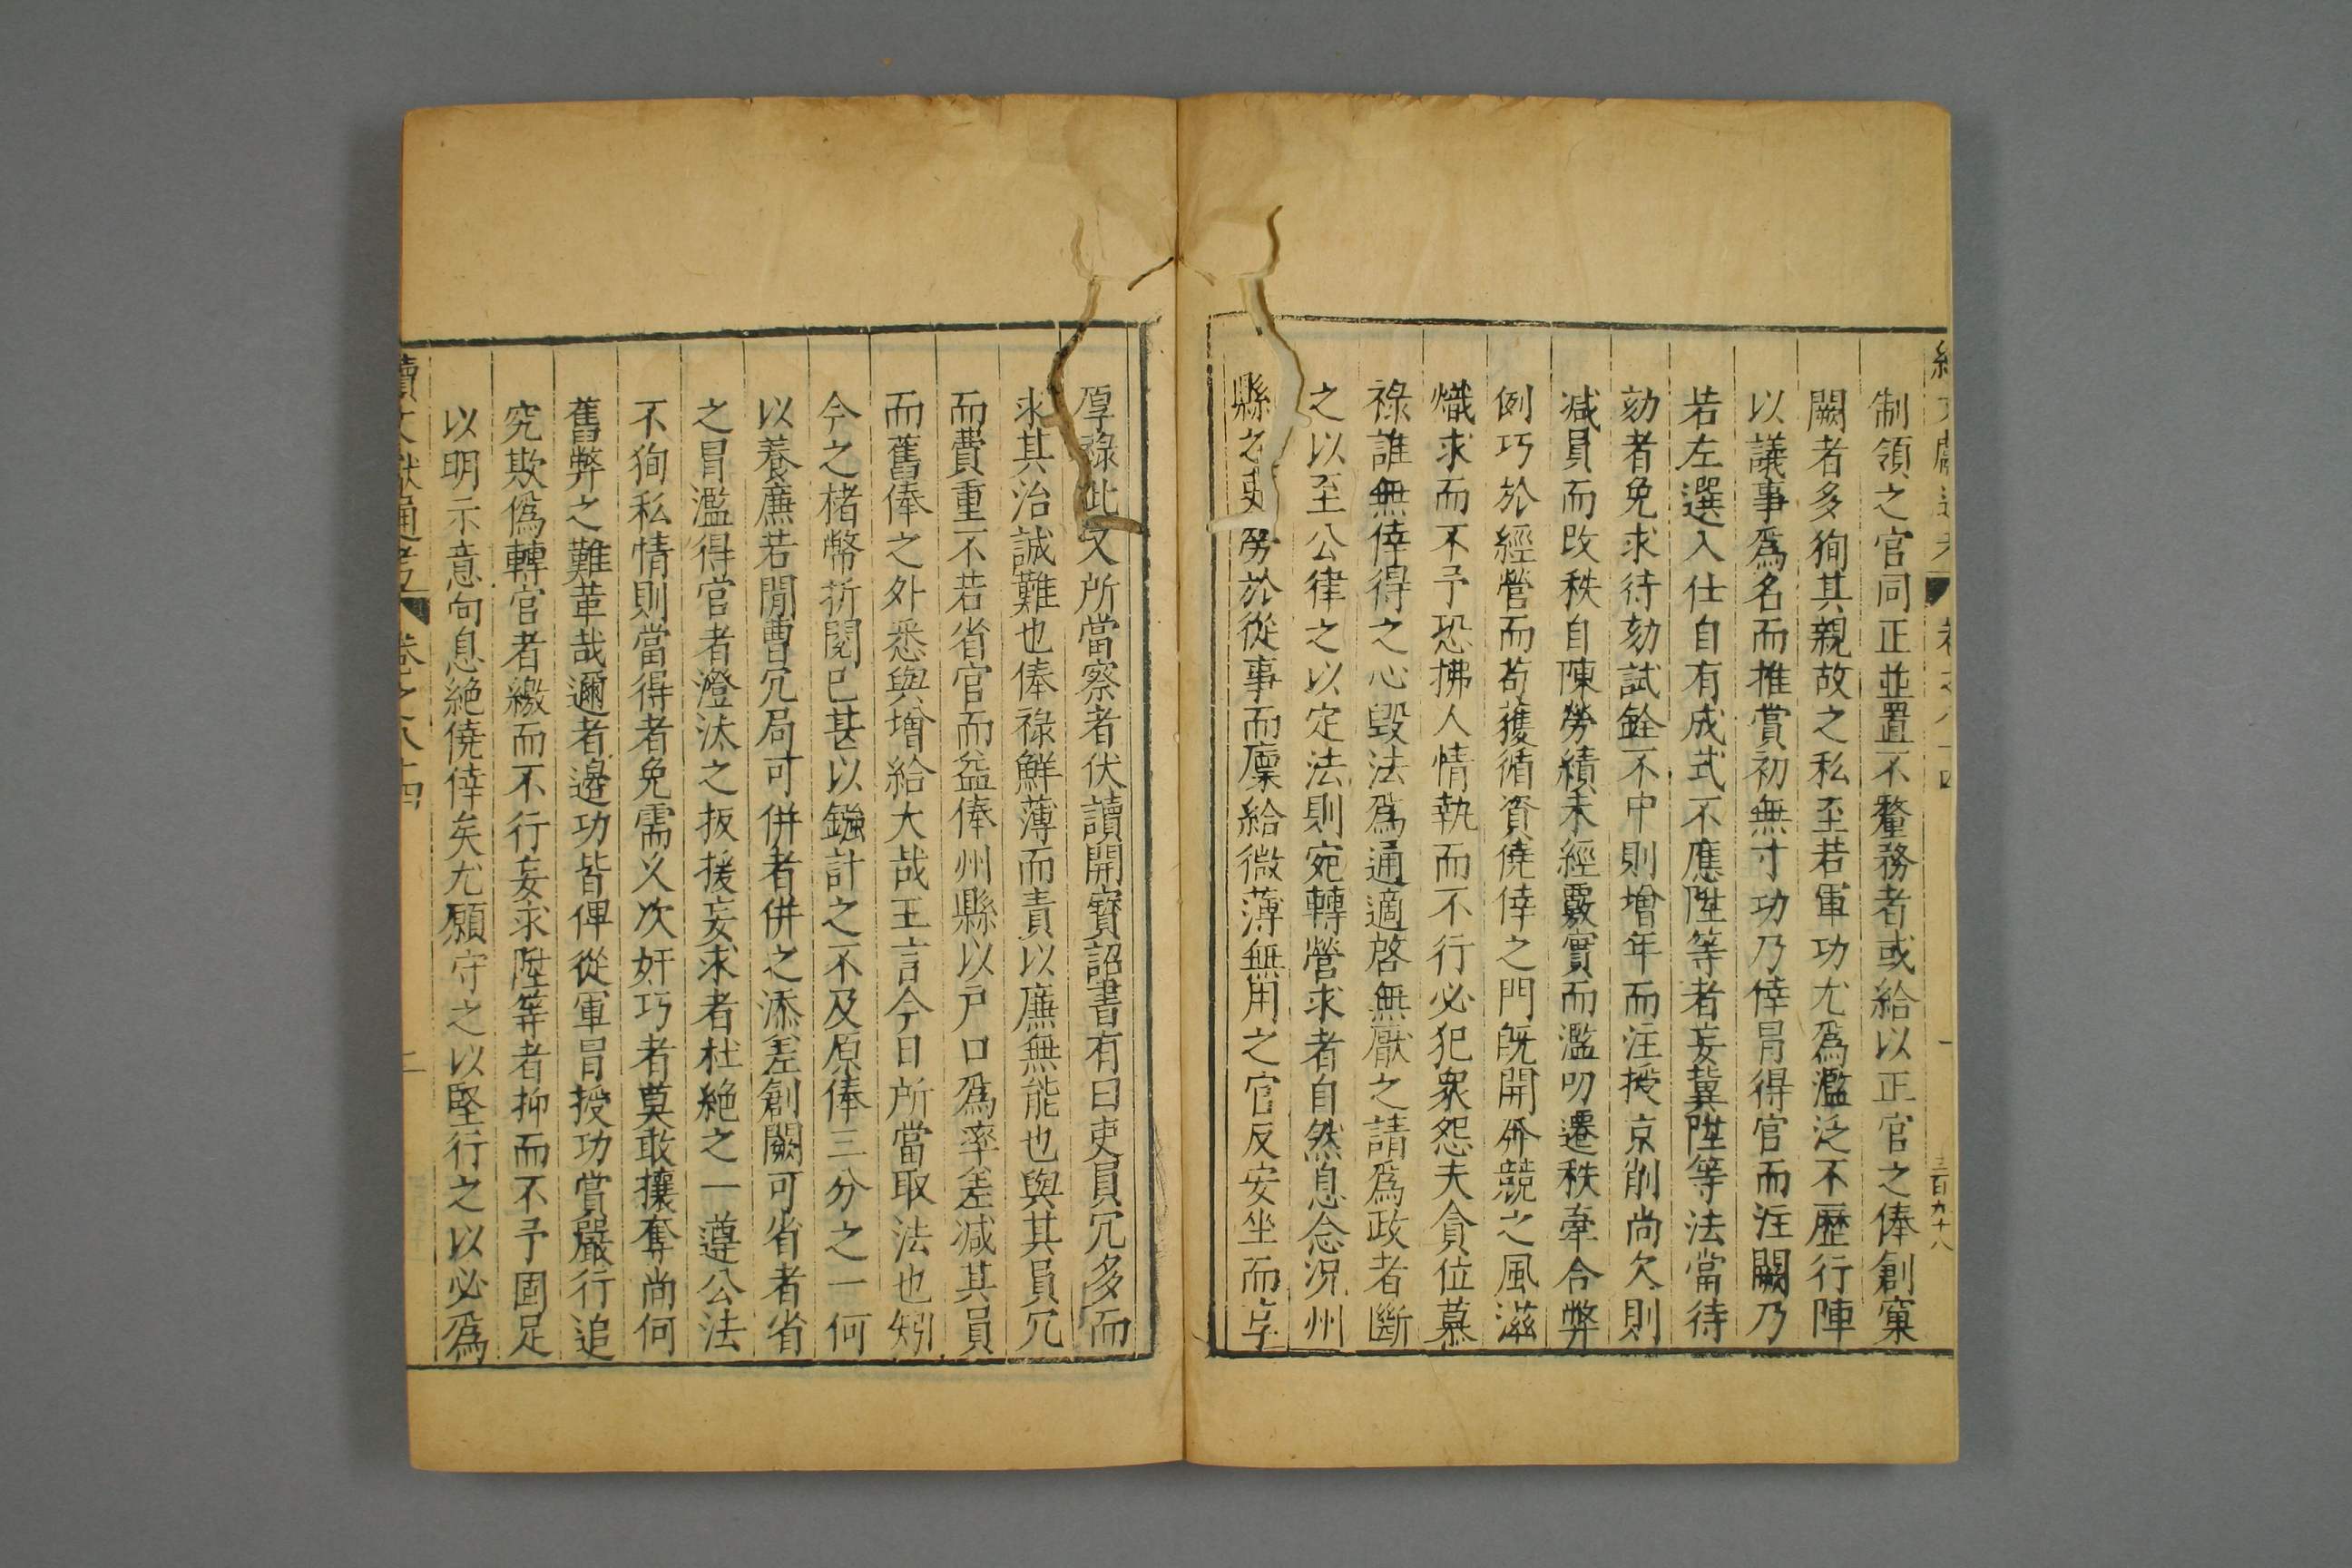 制領之官同正並置不釐務者或給以正官之俸創窠
闕者多狥其親故之私至若軍功尤爲濫泛不歷行陣
以議事爲名而推賞初無寸功乃倖冐得官而注闕乃
若左選入仕自有成式不應陞等者妄冀陞等法當待
効者免求待効試銓不中則增年而注授京削尚欠則
减員而改秩自陳勞績未經覈實而濫叨遷秩牽合弊
例巧於經營而苟獲循資僥倖之門旣開奔競之風滋
熾求而不予恐拂人情執而不行必犯衆怨夫貪位慕
祿誰無倖得之心毀法爲通適啓無厭之請爲政者斷
之以至公律之以定法則宛轉營求者自然息念況州
縣之吏勞於從事而廩給微薄無用之官反安坐而享
厚祿此又所當察者伏讀開寳詔書有曰吏員冗多而
求其治誠難也俸祿鮮薄而責以廉無能也與其員冗
而費重不若省官而益俸州縣以戶口爲率差减其員
而舊俸之外悉與增給大哉王言今日所當取法也矧
今之楮幣折閱已甚以鏹計之不及原俸三分之一何
以養廉若閒曹冗局可併者併之添差創闕可省者省
之冒濫得官者澄汰之扳援妄求者杜絶之一遵公法
不狥私情則當得者免需久次奸巧者莫敢攘奪尚何
舊弊之難革哉邇者邊功皆俾從軍冐授功賞嚴行追
究欺僞轉官者繳而不行妄求陞等者抑而不予固足
以明示意向息絶僥倖矣尤願守之以堅行之以必爲
續文獻通考 卷之八十四 二